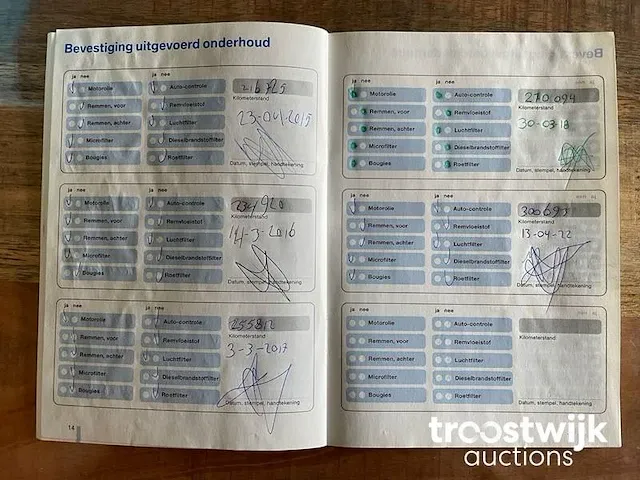 Bevestiging uitgevoerd onderhoud
ja nee
ja nee
Motorolie
Auto-controle
216725
Remmen, voor
Remvloeistof
Kilometerstand
Remmen, achter
Luchtfilter
23-04-2015
Microfilter
Dieselbrandstoffilter
Bougies
Roetfilter
Datum, stempel, handtekening
ja nee
ja nee
Motorolie
Auto-controle
234920
Remmen, voor
Remvloeistof
Kilometerstand
Remmen, achter
Luchtfilter
14-3-2016
Microfilter
Dieselbrandstoffilter
Bougies
Roetfilter
Datum, stempel, handtekening
ja nee
ja nee
Motorolie
Auto-controle
Remmen, voor
Remvloeistof
Kilometerstand
Remmen, achter
Luchtfilter
3-3-2017
Microfilter
Dieselbrandstoffilter
Bougies
Roetfilter
Datum, stempel, handtekening
14
ja nee
ja nee
Motorolie
Auto-controle
270.094
Remmen, voor
Remvloeistof
Kilometerstand
Remmen, achter
Luchtfilter
30-03-18
Microfilter
Dieselbrandstoffilter
Bougies
Roetfilter
Datum, stempel, handtekening
ja nee
ja nee
Motorolie
Auto-controle
300695
Remmen, voor
Remvloeistof
Kilometerstand
Remmen, achter
Luchtfilter
13-04-22
Microfilter
Dieselbrandstoffilter
Bougies
Roetfilter
Datum, stempel, handtekening
ja nee
ja nee
Motorolie
Auto-controle
Remmen, voor
Remvloeistof
Kilometerstand
Remmen, achter
Luchtfilter
Microfilter
Dieselbrandstoffilter
Bougies
Roetfilter
Datum, stempel, handtekening
troostwijk
auctions